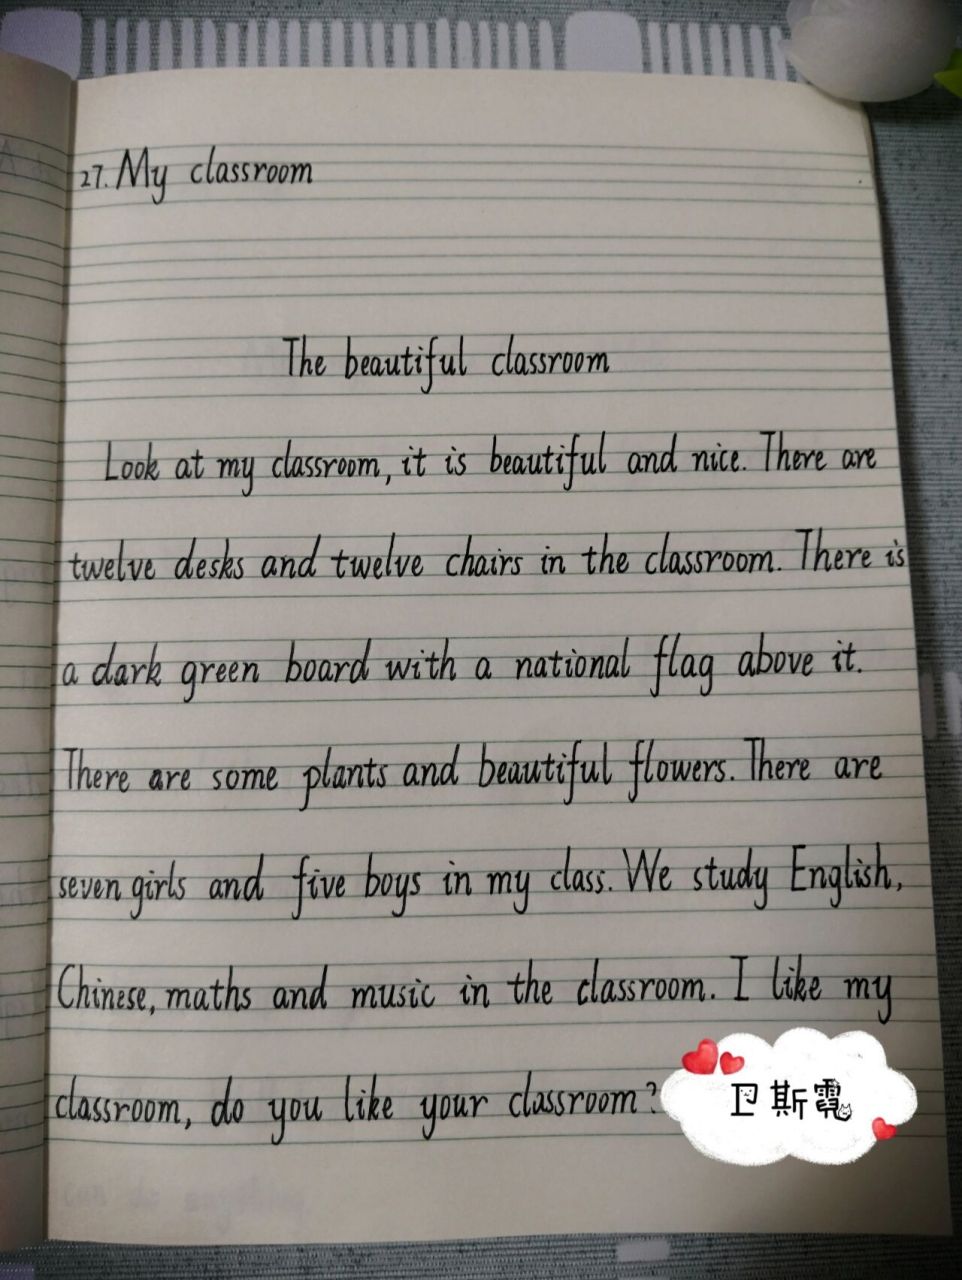 27. My classroom
The beautiful classroom
Look at my classroom, it is beautiful and nice. There are
twelve desks and twelve chairs in the classroom. There is
a dark green board with a national flag above it.
There are some plants and beautiful flowers. There are
seven girls and five boys in my class. We study English,
Chinese, maths and music in the classroom. I like my
classroom, do you like your classroom?
卫斯霓